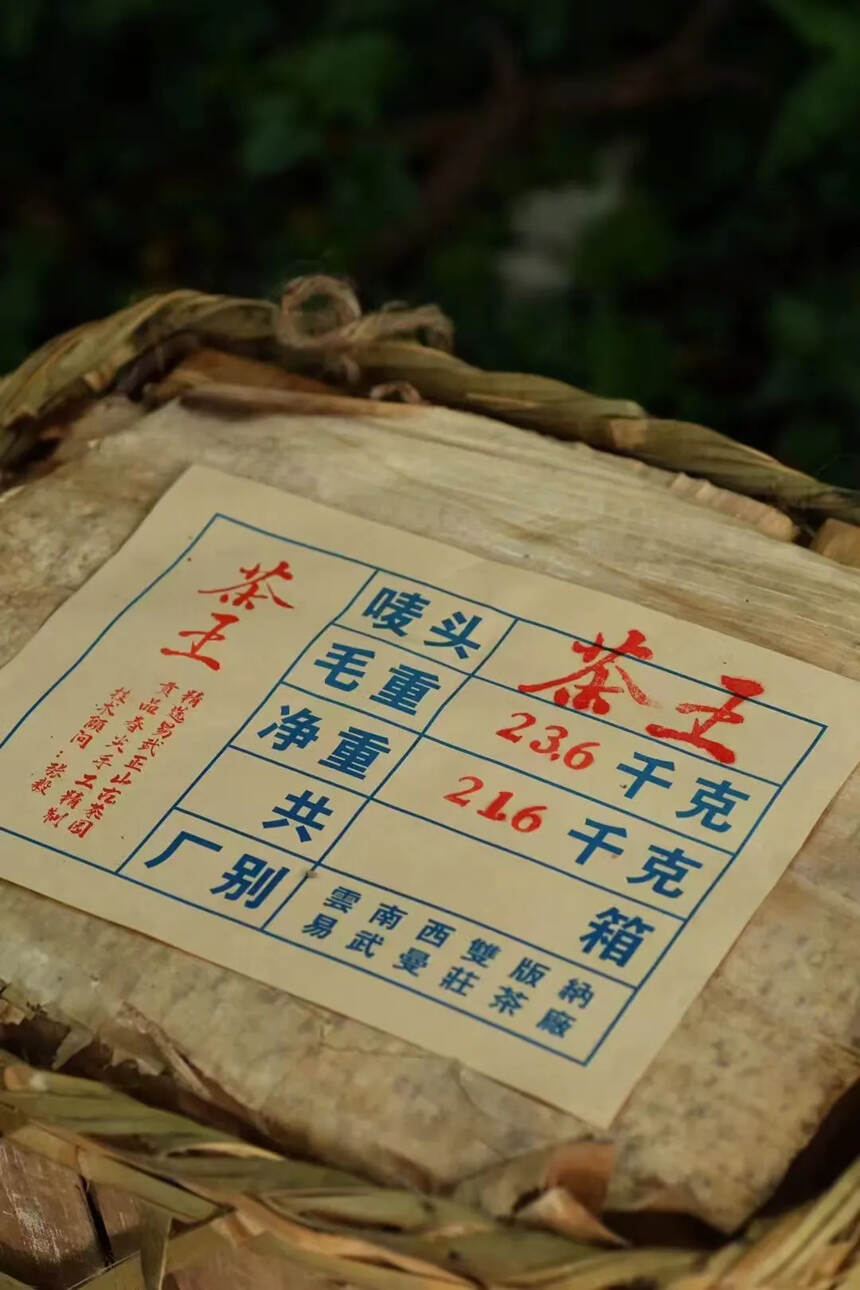 茶王
精选易武正山古茶园
贡品春尖手工精制
技术顾问：张毅
唛头 茶王
毛重 23.6 千克
净重 21.6 千克
共 箱
厂别 雲南西雙版納
易武曼莊茶廠